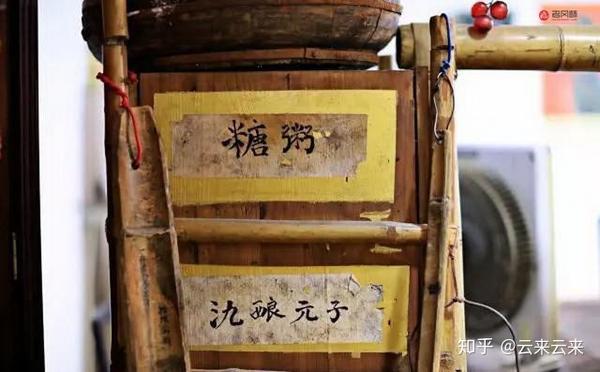 糖粥
氿酿元子
知乎 @云来云来